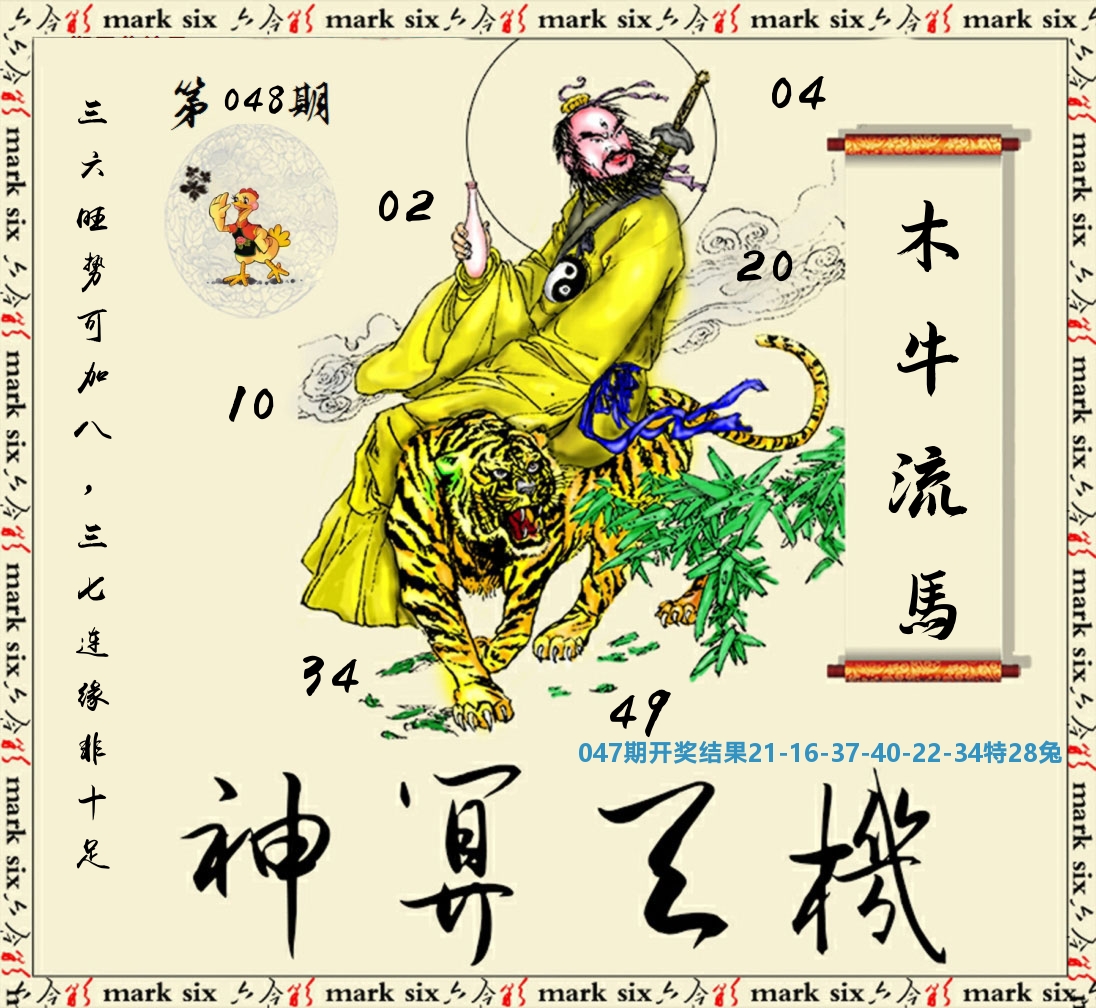 mark six mark six mark six mark six mark six
第048期
三六旺势可加八，三七连缘非十足
04
02
20
10
34
49
木牛流馬
047期开奖结果21-16-37-40-22-34特28兔
神算天機
mark six
mark six
mark six
mark six
mark six
mark six
mark six
mark six
mark six mark six mark six mark six mark six